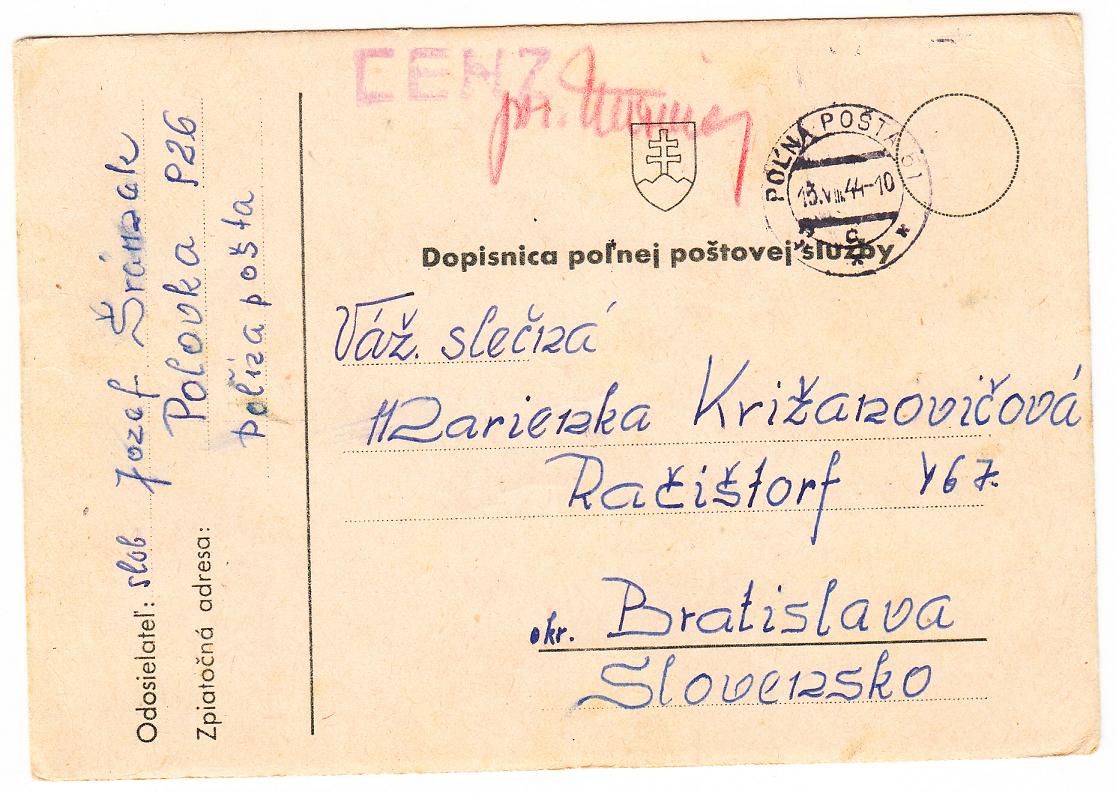 CENZ
POĽNÁ POŠTA 51
13.VIII.44-10
Dopisnica poľnej poštovej služby
Váž. slečná
Marienka Križanovičová
Račištorf 467.
okr. Bratislava
Slovensko
Odosielateľ: slob Jozef Šránzak
Zpiatočná adresa:
Polovka P26
poľná pošta